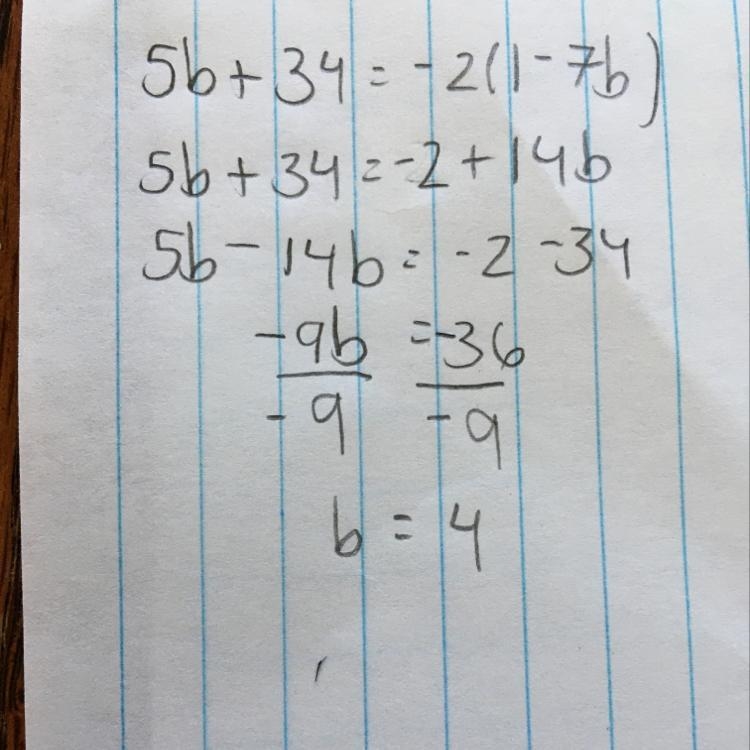 5b + 34 = -2(1 - 7b)
5b + 34 = -2 + 14b
5b - 14b = -2 - 34
-9b = -36
-9 -9
b = 4